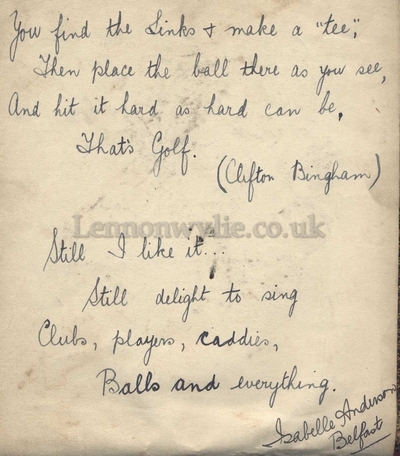 You find the Links & make a "tee",
Then place the ball there as you see,
And hit it hard as hard can be,
That's Golf.
(Clifton Bingham)
Lennonwylie.co.uk
Still I like it...
Still delight to sing
Clubs, players, caddies,
Balls and everything.
Isabelle Anderson
Belfast